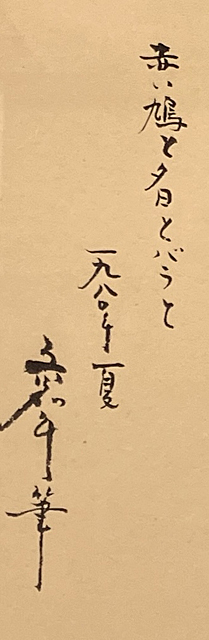 赤い鳩と夕日とバラと
一九八〇年 夏
筆